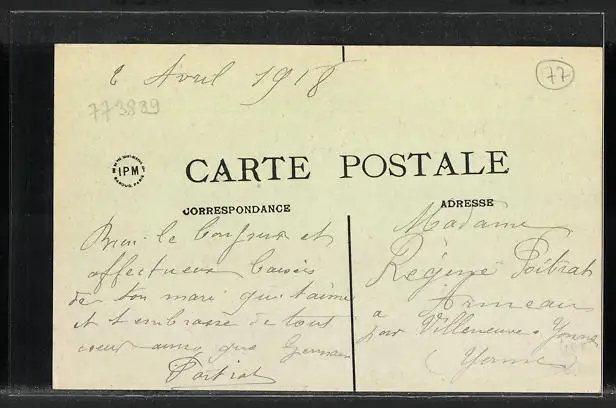 2 Avril 1918
77
773839
IPM
CARTE POSTALE
CORRESPONDANCE
ADRESSE
Bien le bonjour et
affectueux baisés
de ton mari qui t'aime
et t embrasse de tout
coeur que Germain
Poitrat
Madame
Régine Poitrat
a Armeau
par Villeneuve s Yonne
(Yonne)